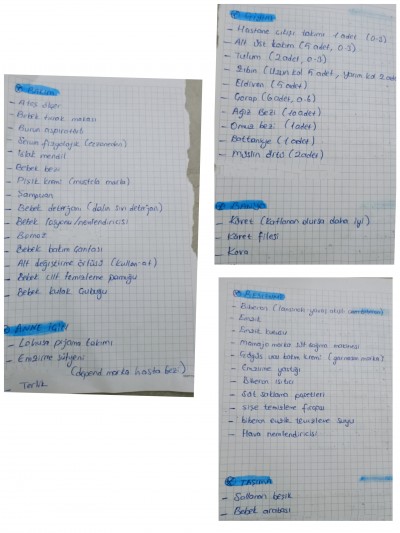 Bakım
- Ateş ölçer
- Bebek tırnak makası
- Burun aspiratörü
- Serum fizyolojik (eczaneden)
- Islak mendil
- Bebek bezi
- Pişik kremi (mustela marka)
- Şampuan
- Bebek deterjanı (dalin sıvı deterjan)
- Bebek losyonu/nemlendiricisi
- Bebek bakım çantası
- Alt değiştirme örtüsü (kullan-at)
- Bebek cilt temizleme pamuğu
- Bebek kulak çubuğu
- Lohusa pijama takımı
- Emzirme sütyeni
(depend marka hasta bezi)
Terlik
- Hastane çıkışı takımı 1 adet (0-3)
- Alt üst takım (5 adet, 0-3)
- Tulum (2 adet, 0-3)
- Zıbın (Uzun kol 5 adet, yarım kol 2 adet
- Eldiven (5 adet)
- Çorap (6 adet, 0-6)
- Ağız Bezi (10 adet)
- Omuz bezi (1 adet)
- Battaniye (1 adet)
- Müslin örtü (2 adet)
Banyo
- Küvet (katlanan olursa daha iyi)
- Küvet filesi
- Biberon
- Emzik
- Emzik kutusu
- marka süt sağma makinesi
- Göğüs ucu bakım kremi
- Emzirme yastığı
- Biberon ısıtıcı
- Süt saklama poşetleri
- şişe temizleme fırçası
- biberon emzik temizleme suyu
- Hava nemlendiricisi
TAŞIMA
- Sallanan beşik
- Bebek arabası